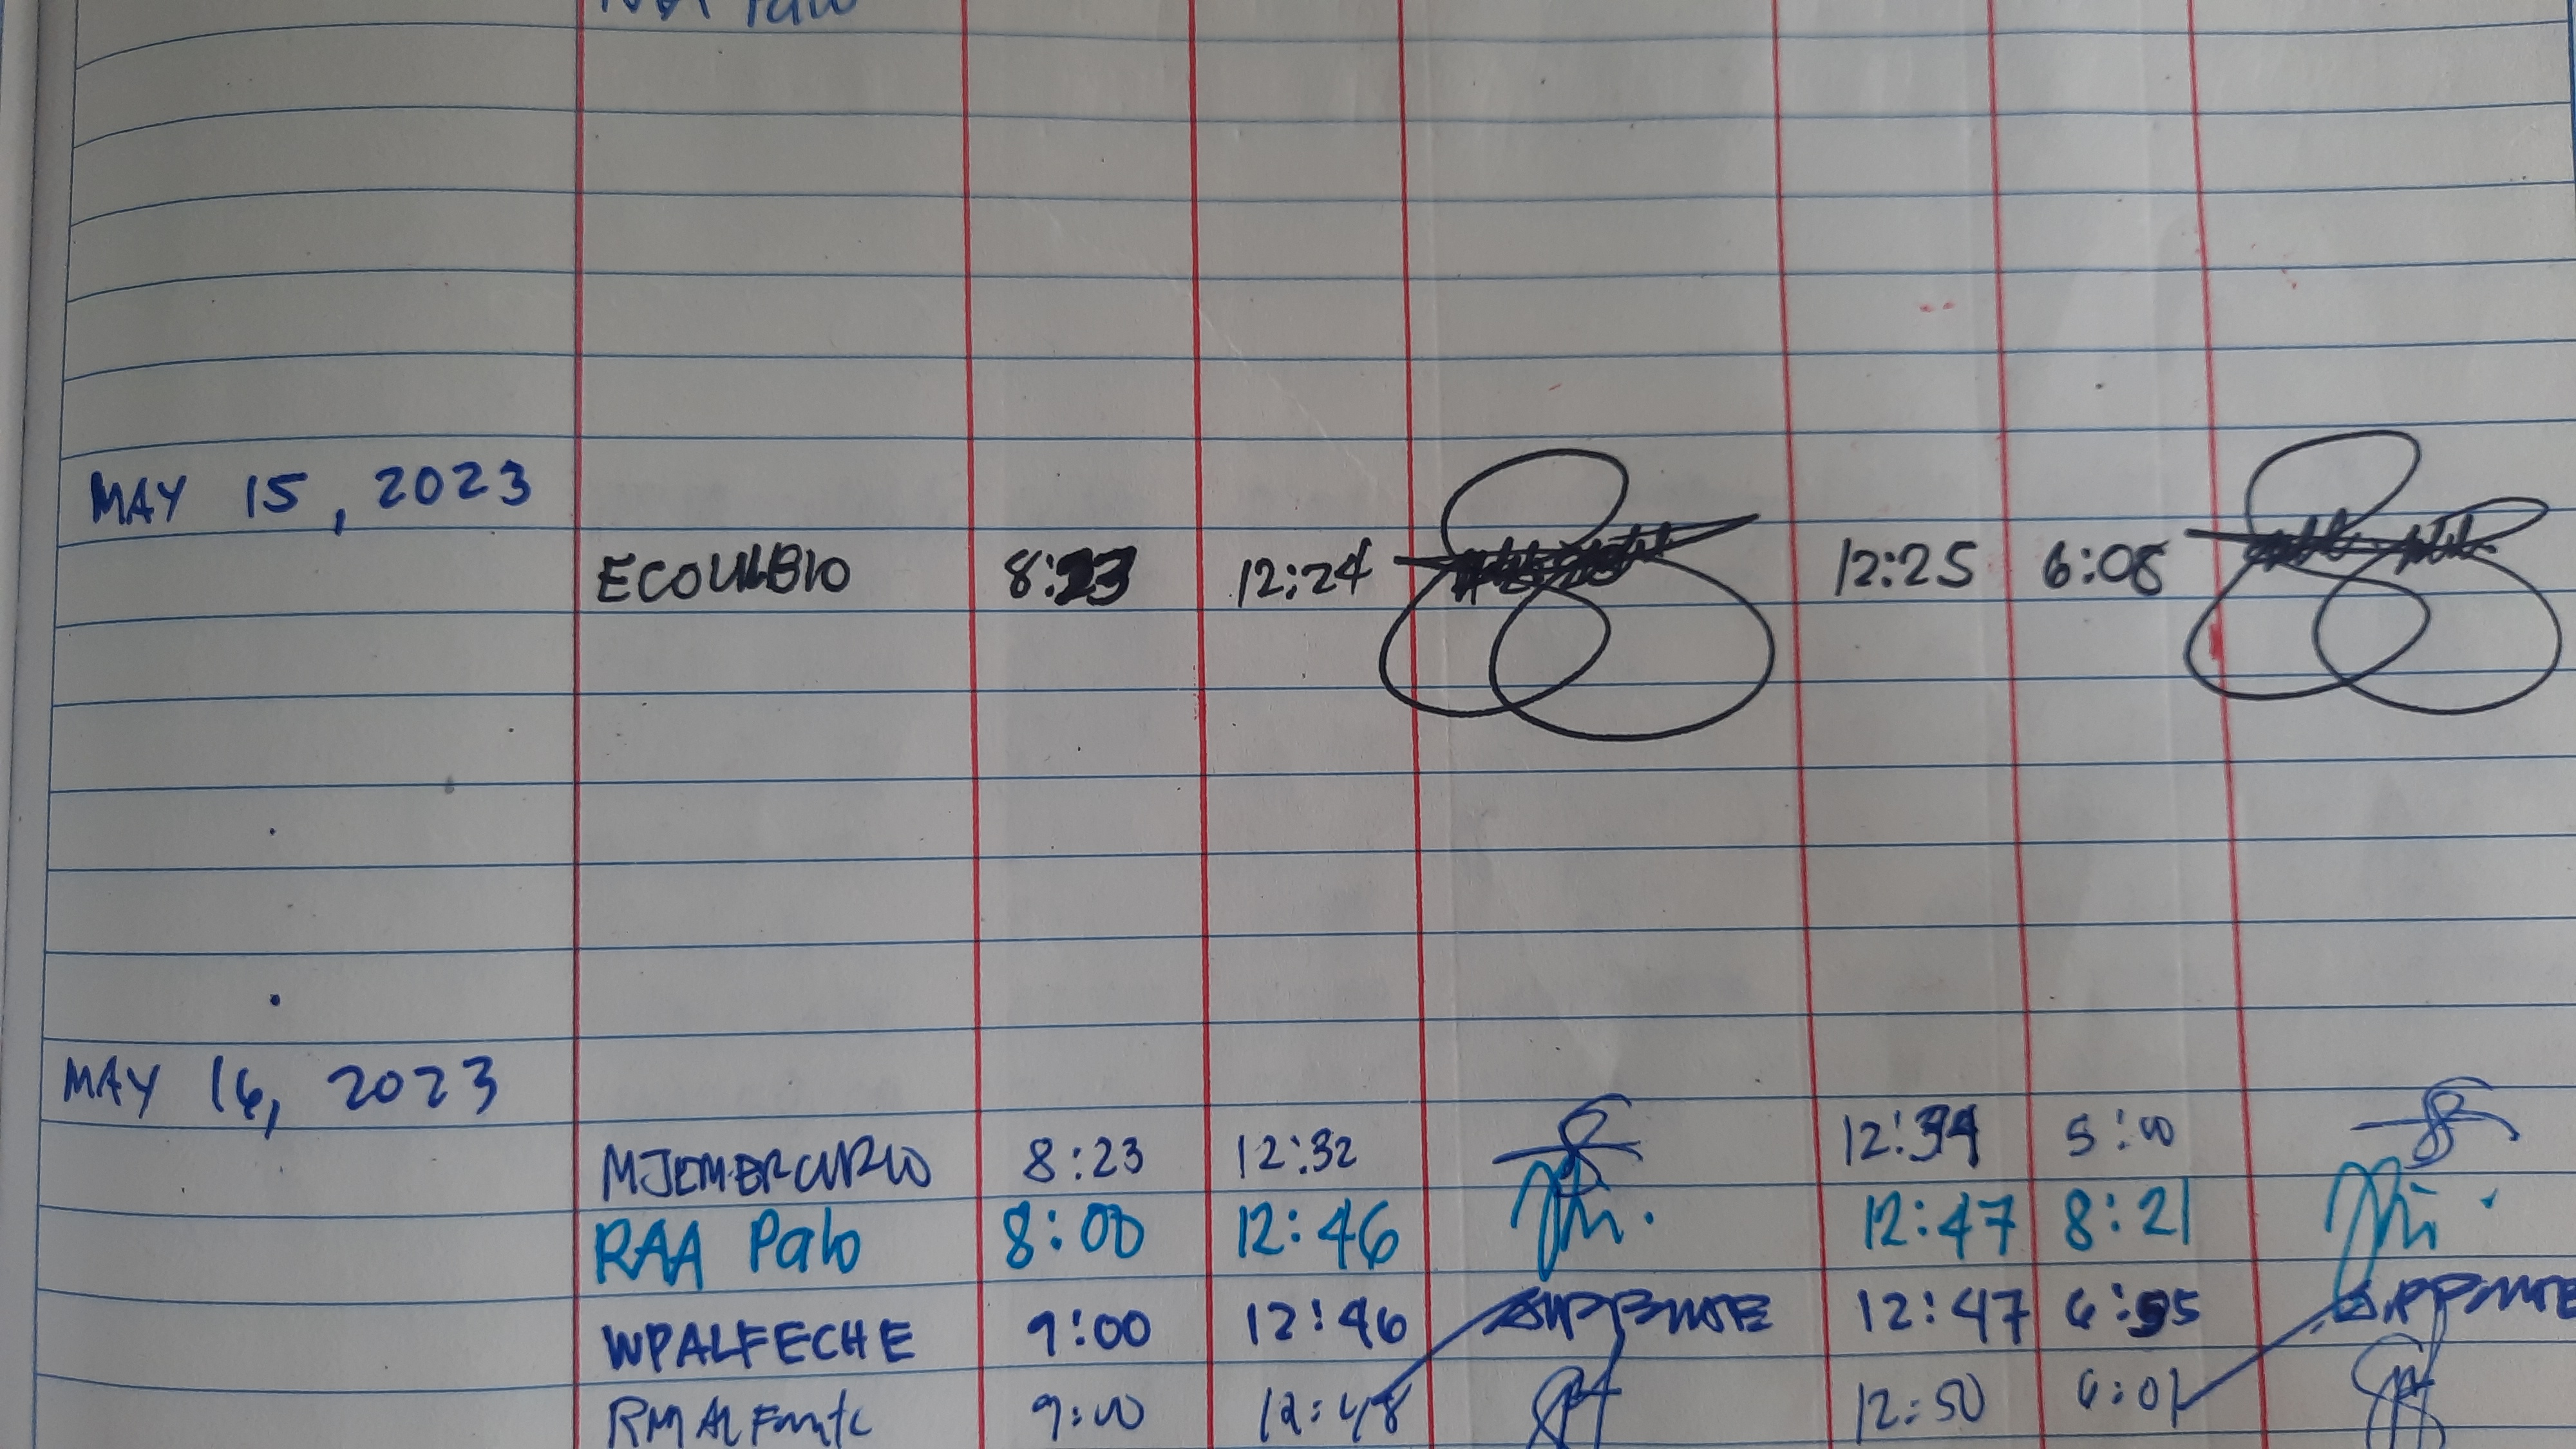 RAA Palo
MAY 15, 2023
ECOULBIO 8:23 12:24 12:25 6:08
MAY 16, 2023
MJEMERCURIO 8:23 12:32 12:34 5:00
RAA Palo 8:00 12:46 12:47 8:21
WPALFECHE 9:00 12:46 12:47
9:00 12:48 12:50 6:01